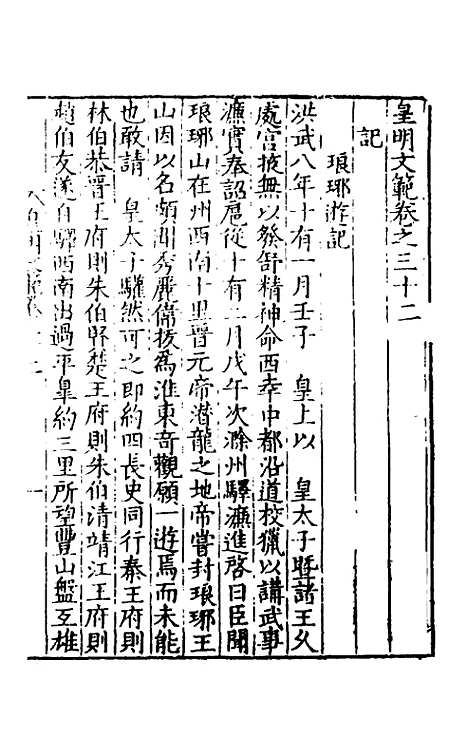 皇明文範卷之三十二
記
琅琊游記
洪武八年十有一月壬子　皇上以　皇太子暨諸王久
處宮掖無以發舒精神命西幸中都沿道校獵以講武事
濂實奉詔扈從十有二月戊午次滁州驛濂進啓曰臣聞
琅琊山在州西南十里晉元帝潛龍之地帝嘗封琅琊王
山因以名頗聞秀麗偉拔爲淮東奇觀願一遊焉而未能
也敢請　皇太子驩然可之即約四長史同行秦王府則
林伯恭晉王府則朱伯賢楚王府則朱伯清靖江王府則
趙伯友遂自驛西南出過平皐約三里所望豐山盤亙雄